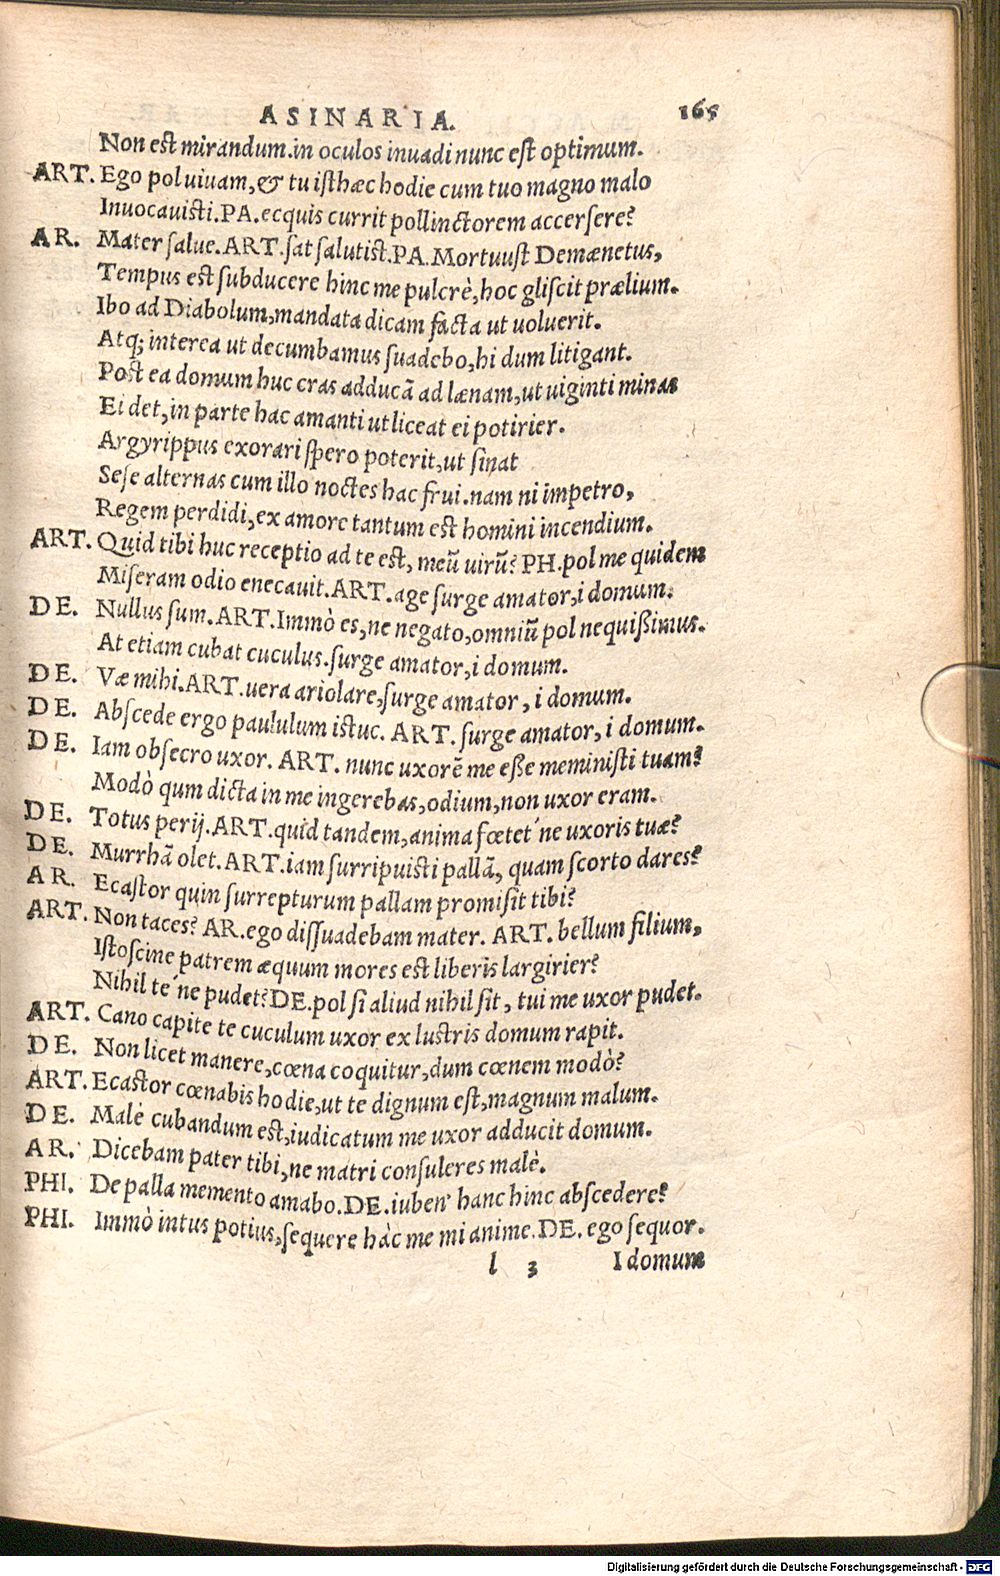 ASINARIA. 165
Non est mirandum.in oculos inuadi nunc est optimum.
ART. Ego pol uiuam,& tu isthæc hodie cum tuo magno malo
Inuocauisti.PA.ecquis currit pollinctorem accersere?
AR. Mater salue.ART.sat salutist.PA.Mortuust Demænetus,
Tempus est subducere hinc me pulcrè,hoc gliscit prælium.
Ibo ad Diabolum,mandata dicam facta ut uoluerit.
Atq; interea ut decumbamus suadebo,hi dum litigant.
Post ea domum huc cras adducã ad lænam,ut uiginti minas
Ei det,in parte hac amanti ut liceat ei potirier.
Argyrippus exorari spero poterit,ut sinat
Sese alternas cum illo noctes hac frui.nam ni impetro,
Regem perdidi,ex amore tantum est homini incendium.
ART. Quid tibi huc receptio ad te est, meũ uirũ? PH.pol me quidem
Miseram odio enecauit.ART.age surge amator,i domum.
DE. Nullus sum.ART.Immò es,ne negato,omniũ pol nequißimus.
At etiam cubat cuculus.surge amator,i domum.
DE. Væ mihi.ART.uera ariolare,surge amator, i domum.
DE. Abscede ergo paululum istuc. ART. surge amator, i domum.
DE. Iam obsecro uxor. ART. nunc uxorẽ me eße meministi tuam?
Modò qum dicta in me ingerebas,odium,non uxor eram.
DE. Totus perij.ART.quid tandem,anima fœtet´ne uxoris tuæ?
DE. Murrhã olet.ART.iam surripuisti pallã, quam scorto dares?
AR. Ecastor quin surrepturum pallam promisit tibi?
ART. Non taces? AR.ego dissuadebam mater. ART. bellum filium,
Istoscine patrem æquum mores est liberis largirier?
Nihil te´ne pudet?DE.pol si aliud nihil sit, tui me uxor pudet.
ART. Cano capite te cuculum uxor ex lustris domum rapit.
DE. Non licet manere,cœna coquitur,dum cœnem modò?
ART. Ecastor cœnabis hodie,ut te dignum est,magnum malum.
DE. Malè cubandum est,iudicatum me uxor adducit domum.
AR. Dicebam pater tibi,ne matri consuleres malè.
PHI. De palla memento amabo.DE.iuben´ hanc hinc abscedere?
PHI. Immò intus potius,sequere hàc me mi anime.DE. ego sequor.
l 3 I domum
Digitalisierung gefördert durch die Deutsche Forschungsgemeinschaft - DFG